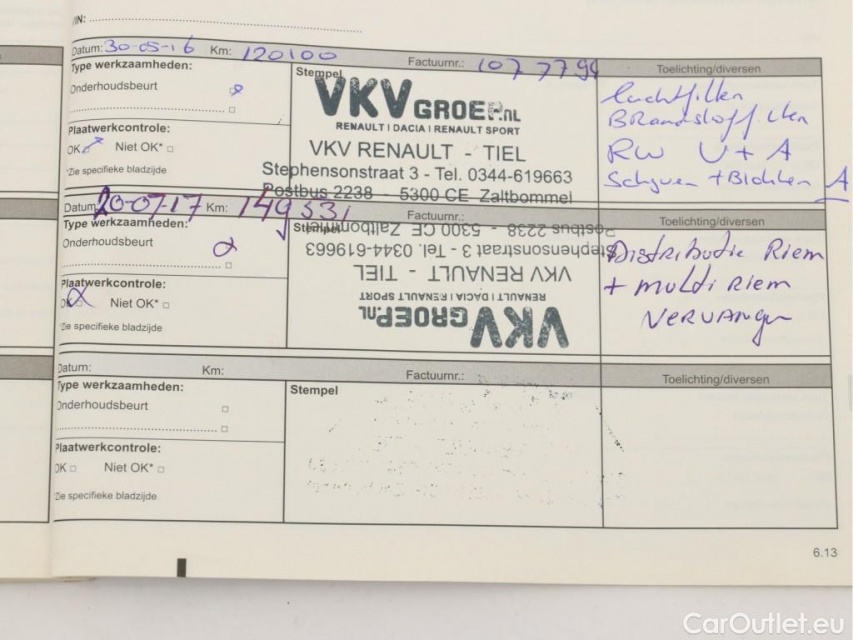 VIN:
Datum: 30-05-16 Km: 120100 Factuurnr.: 1077794 Toelichting/diversen
Type werkzaamheden:
Onderhoudsbeurt
Plaatwerkcontrole:
OK Niet OK*
Zie specifieke bladzijde
Stempel
VKV GROEP.NL
RENAULT | DACIA | RENAULT SPORT
VKV RENAULT - TIEL
Stephensonstraat 3 - Tel. 0344-619663
Postbus 2238 - 5300 CE Zaltbommel
Luchtfilter
Brandstoffilter
RW U + A
Schyven + Blokken A
Datum: 20-07-17 Km: 149531 Factuurnr.: Toelichting/diversen
Type werkzaamheden:
Onderhoudsbeurt
Plaatwerkcontrole:
OK Niet OK*
Zie specifieke bladzijde
Stempel
VKV GROEP.NL
RENAULT | DACIA | RENAULT SPORT
VKV RENAULT - TIEL
Stephensonstraat 3 - Tel. 0344-619663
Postbus 2238 - 5300 CE Zaltbommel
Distributie Riem
+ multi Riem
Vervangen
Datum: Km: Factuurnr.: Toelichting/diversen
Type werkzaamheden:
Onderhoudsbeurt
Plaatwerkcontrole:
OK Niet OK*
Zie specifieke bladzijde
Stempel
6.13
CarOutlet.eu